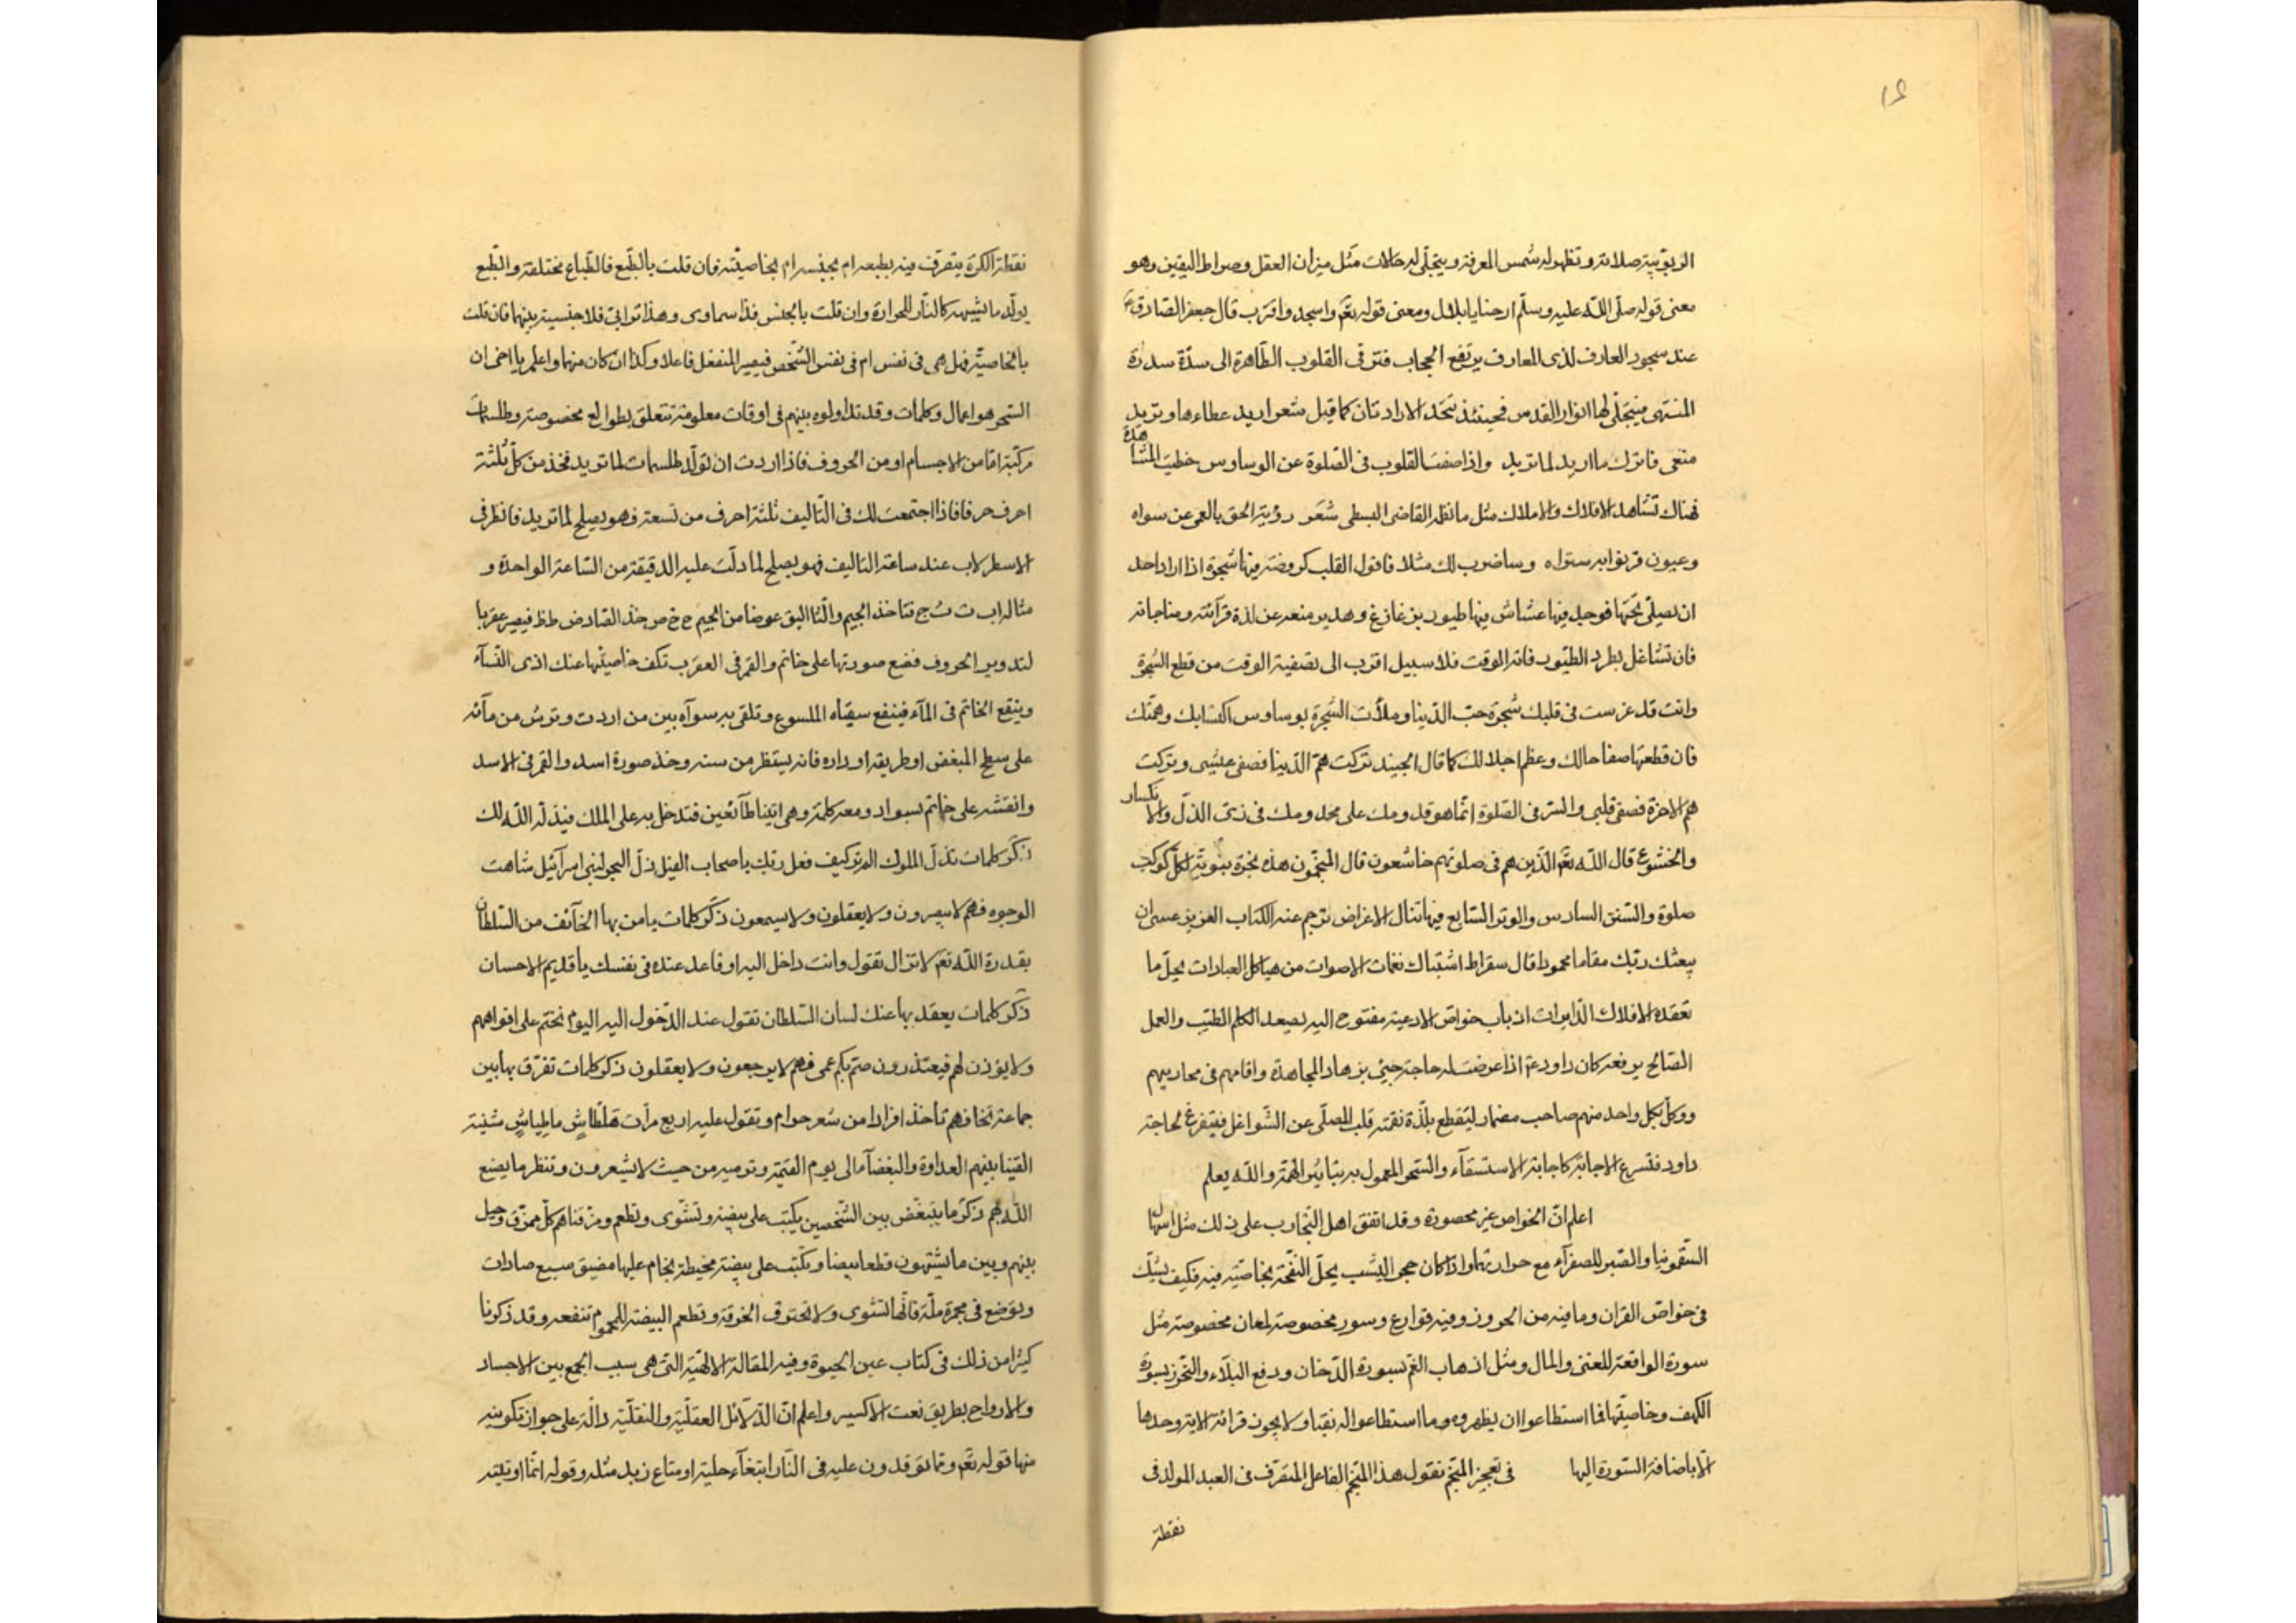 ١٤
الربوبية صلاته وتظهر له شمس المعرفة ويتجلى له حالات مثل ميزان العقل وصراط اليقين وهو
معنى قوله صلّى اللّه عليه وسلّم ارحنا يا بلال ومعنى قوله تعّم واسجد واقترب قال جعفر الصادق ع
عند سجود العارف لذى المعارف يرتفع الحجاب فترقى القلوب الطّاهرة الى سدّة سدرة
المنتهى فيتجلّى لها انوار القدس فحينئذ تتّحد الارادتان كما قيل شعر اريد عطاءها وتريد
منعى فاترك ما اريد لما تريد واذا صفت القلوب فى الصّلوة عن الوساوس خطيت المشاهدة
فهناك تشاهد الافلاك والاملاك مثل ما نظر القاضى البسطى شعر رؤية الحق بالعمى عن سواه
وعيون قربوا به ستراه وساضرب لك مثلا فاقول القلب كروضة فيها شجرة اذا اراد احد
ان يصلّى تحتها فوجد فيها عشاش فيها طيور بزغازغ وهدير منعه عن لذة قرآئته ومناجاته
فان تشاغل بطرد الطّيور فاته الوقت فلا سبيل اقرب الى تصفية الوقت من قطع الشجرة
وانت قد غرست فى قلبك شجرة حبّ الدّنيا وملأت الشجرة بوساوس اكتسابك وهمّتك
فان قطعتها صفا حالك وعظم اجلالك كما قال الجنيد تركت همّ الدّنيا فصفى عيشى وتركت
همّ الاخرة فصفى قلبى والسّر فى الصّلوة انّما هو قدومك على مجد ومك فى زىّ الذلّ والانكسار
والخشوع قال اللّه تعّم الّذين هم فى صلوتهم خاشعون قال المنجّمون هذه نجرة بنوبتة لكلّ كوكب
صلوة والشفق السادس والوتر السّابع فيها تنال الاغراض ترجم عنه الكتاب العزيز عسى ان
يبعثك ربّك مقاما محمودا قال سقراط اشتباك نغمات الاصوات من هياكل العبادات يحلّ ما
تعقده الافلاك الدّايرات ان باب خواصّ الادعية مفتوح اليه يصعد الكلم الطيّب والعمل
الصّالح يرفعه كان داود ع اذا عرضت له حاجة جيئ بزهاد المجاهدة واقامهم فى محاريبهم
ووكّل بكل واحد منهم صاحب مضمار ليقطع بلذّة نغمته قلب المصلّى عن الشّواغل فيتفرغ لحاجة
داود فتسرع الاجابة كاجابة الاستسقآء والسّحر المعمول به بتاييد الهمّة واللّه يعلم
اعلم انّ الخواص غير محصورة وقد اتفق اهل التّجارب على ذلك مثل اسهال
السّقمونيا والصّبر للصفرآء مع حرارتهما واذا كان حجر اليشب يحلّ النفخة بخاصّيّة فيه فكيف نشك
فى خواصّ القران وما فيه من الحروز وفيه قوارع وسور مخصوصة لمعان مخصوصة مثل
سورة الواقعة للغنى والمال ومثل اذهاب الغمّ بسورة الدّخان ودفع البلآء والتحرّز بسورة
الكهف وخاصيّتها فما استطاعوا ان يظهروه وما استطاعوا له نقبا ولا يجوز قرائة الاية وحدها
الّا باضافة السّورة اليها فى تعجيز المنجّم نقول هذا المنجّم الفاعل المتصرّف فى العبد المولد فى
نقطة
نقطة الكرة يتصرّف فيه بطبعه ام بجنسه ام بخاصيّته فان قلت بالطّبع فالطّباع مختلفة والطّبع
يولّد ما يشبهه كالنّار للحرارة وان قلت بالجنس فذا سماوى وهذا ترابى فلا جنسية بينهما فان قلت
بالخاصيّة فهل هى فى نفس ام فى نفس الشّخص فيصير المنفعل فاعلا وكذا ان كان منهما واعلم يا اخى ان
السّحر هو اعمال وكلمات وقد تداولوه بينهم فى اوقات معلومة تتعلق بطوالع مخصوصة وطلسمات
مركّبة امّا من الاجسام او من الحروف فاذا اردت ان تولّد طلسمات لما تريد فخذ من كلّ ثلثة
احرف حرفا فاذا اجتمعت لك فى التّاليف ثلثة احرف من تسعة فهو يصلح لما تريد فانظر فى
الاسطرلاب عند ساعة التاليف فهو يصلح لما دلّت عليه الدقيقة من السّاعة الواحدة و
مثاله اب ت ث ج فتاخذ الجيم والثا اليق عوضا من الجيم ح خ ص خذ الصّاد ض ط ظ فيصير عقربا
لتدوير الحروف فضع صورتها على خاتم والقمر فى العقرب تكف خاصيّتها عنك اذى النّسآء
وينقع الخاتم فى المآء فينفع سقياه الملسوع وتلقى به سوآه بين من اردت وترش من مآئه
على سطح المبغض او طريقه او داره فانه يستقظر من سنه وخذ صورة اسد والقمر فى الاسد
وانقشه على خاتم بسواد ومعه كلمة وهى اتينا طآئعين فتدخل به على الملك فيذلّه اللّه لك
ذكر كلمات تذلّ الملوك الم تر كيف فعل ربّك باصحاب الفيل ذلّ البحر لبنى اسرآئيل شاهت
الوجوه فهم لا يبصرون ولا يعقلون ولا يسمعون ذكر كلمات يامن بها الخآئف من السّلطان
بقدرة اللّه تعّم لا تزال تقول وانت داخل اليه او قاعد عنده فى نفسك يا قديم الاحسان
ذكر كلمات يعقد بها عنك لسان السّلطان تقول عند الدّخول اليه اليوم نختم على افواههم
ولا يؤذن لهم فيعتذرون صمّ بكم عمى فهم لا يرجعون ولا يعقلون ذكر كلمات تفرّق بها بين
جماعة تخافهم تأخذ افرادا من شعر حرام وتقول عليه اربع مرّات هلطاش ماطياش شتيتة
القينا بينهم العداوة والبغضآء الى يوم القيمة وترميه من حيث لا يشعرون وتنظر ما يصنع
اللّه بهم ذكر ما يتبغّض بين الشّخصين يكتب على بيضة وتشوى وتطعم ومزّقناهم كلّ ممزّق وحيل
بينهم وبين ما يشتهون قطعا بيضا وتكتب على بيضة مخيطة بخام عليها مضيق سبع صادات
ويوضع فى مجمرة ملّة فانّها تشوى ولا تحترق الخرقة وتطعم البيضة للمحموم تنفعه وقد ذكرنا
كثيرا من ذلك فى كتاب عين الحيوة وفيه المقالة الالهيّة التى هى سبب الجمع بين الاجساد
والارواح بطريق نعت الاكسير واعلم انّ الدّلآئل العقليّة والنقليّة دالّة على جواز تكوينه
منها قوله تعّم وممّا توقدون عليه فى النّار ابتغآء حلية او متاع زبد مثله وقوله انّما اوتيته